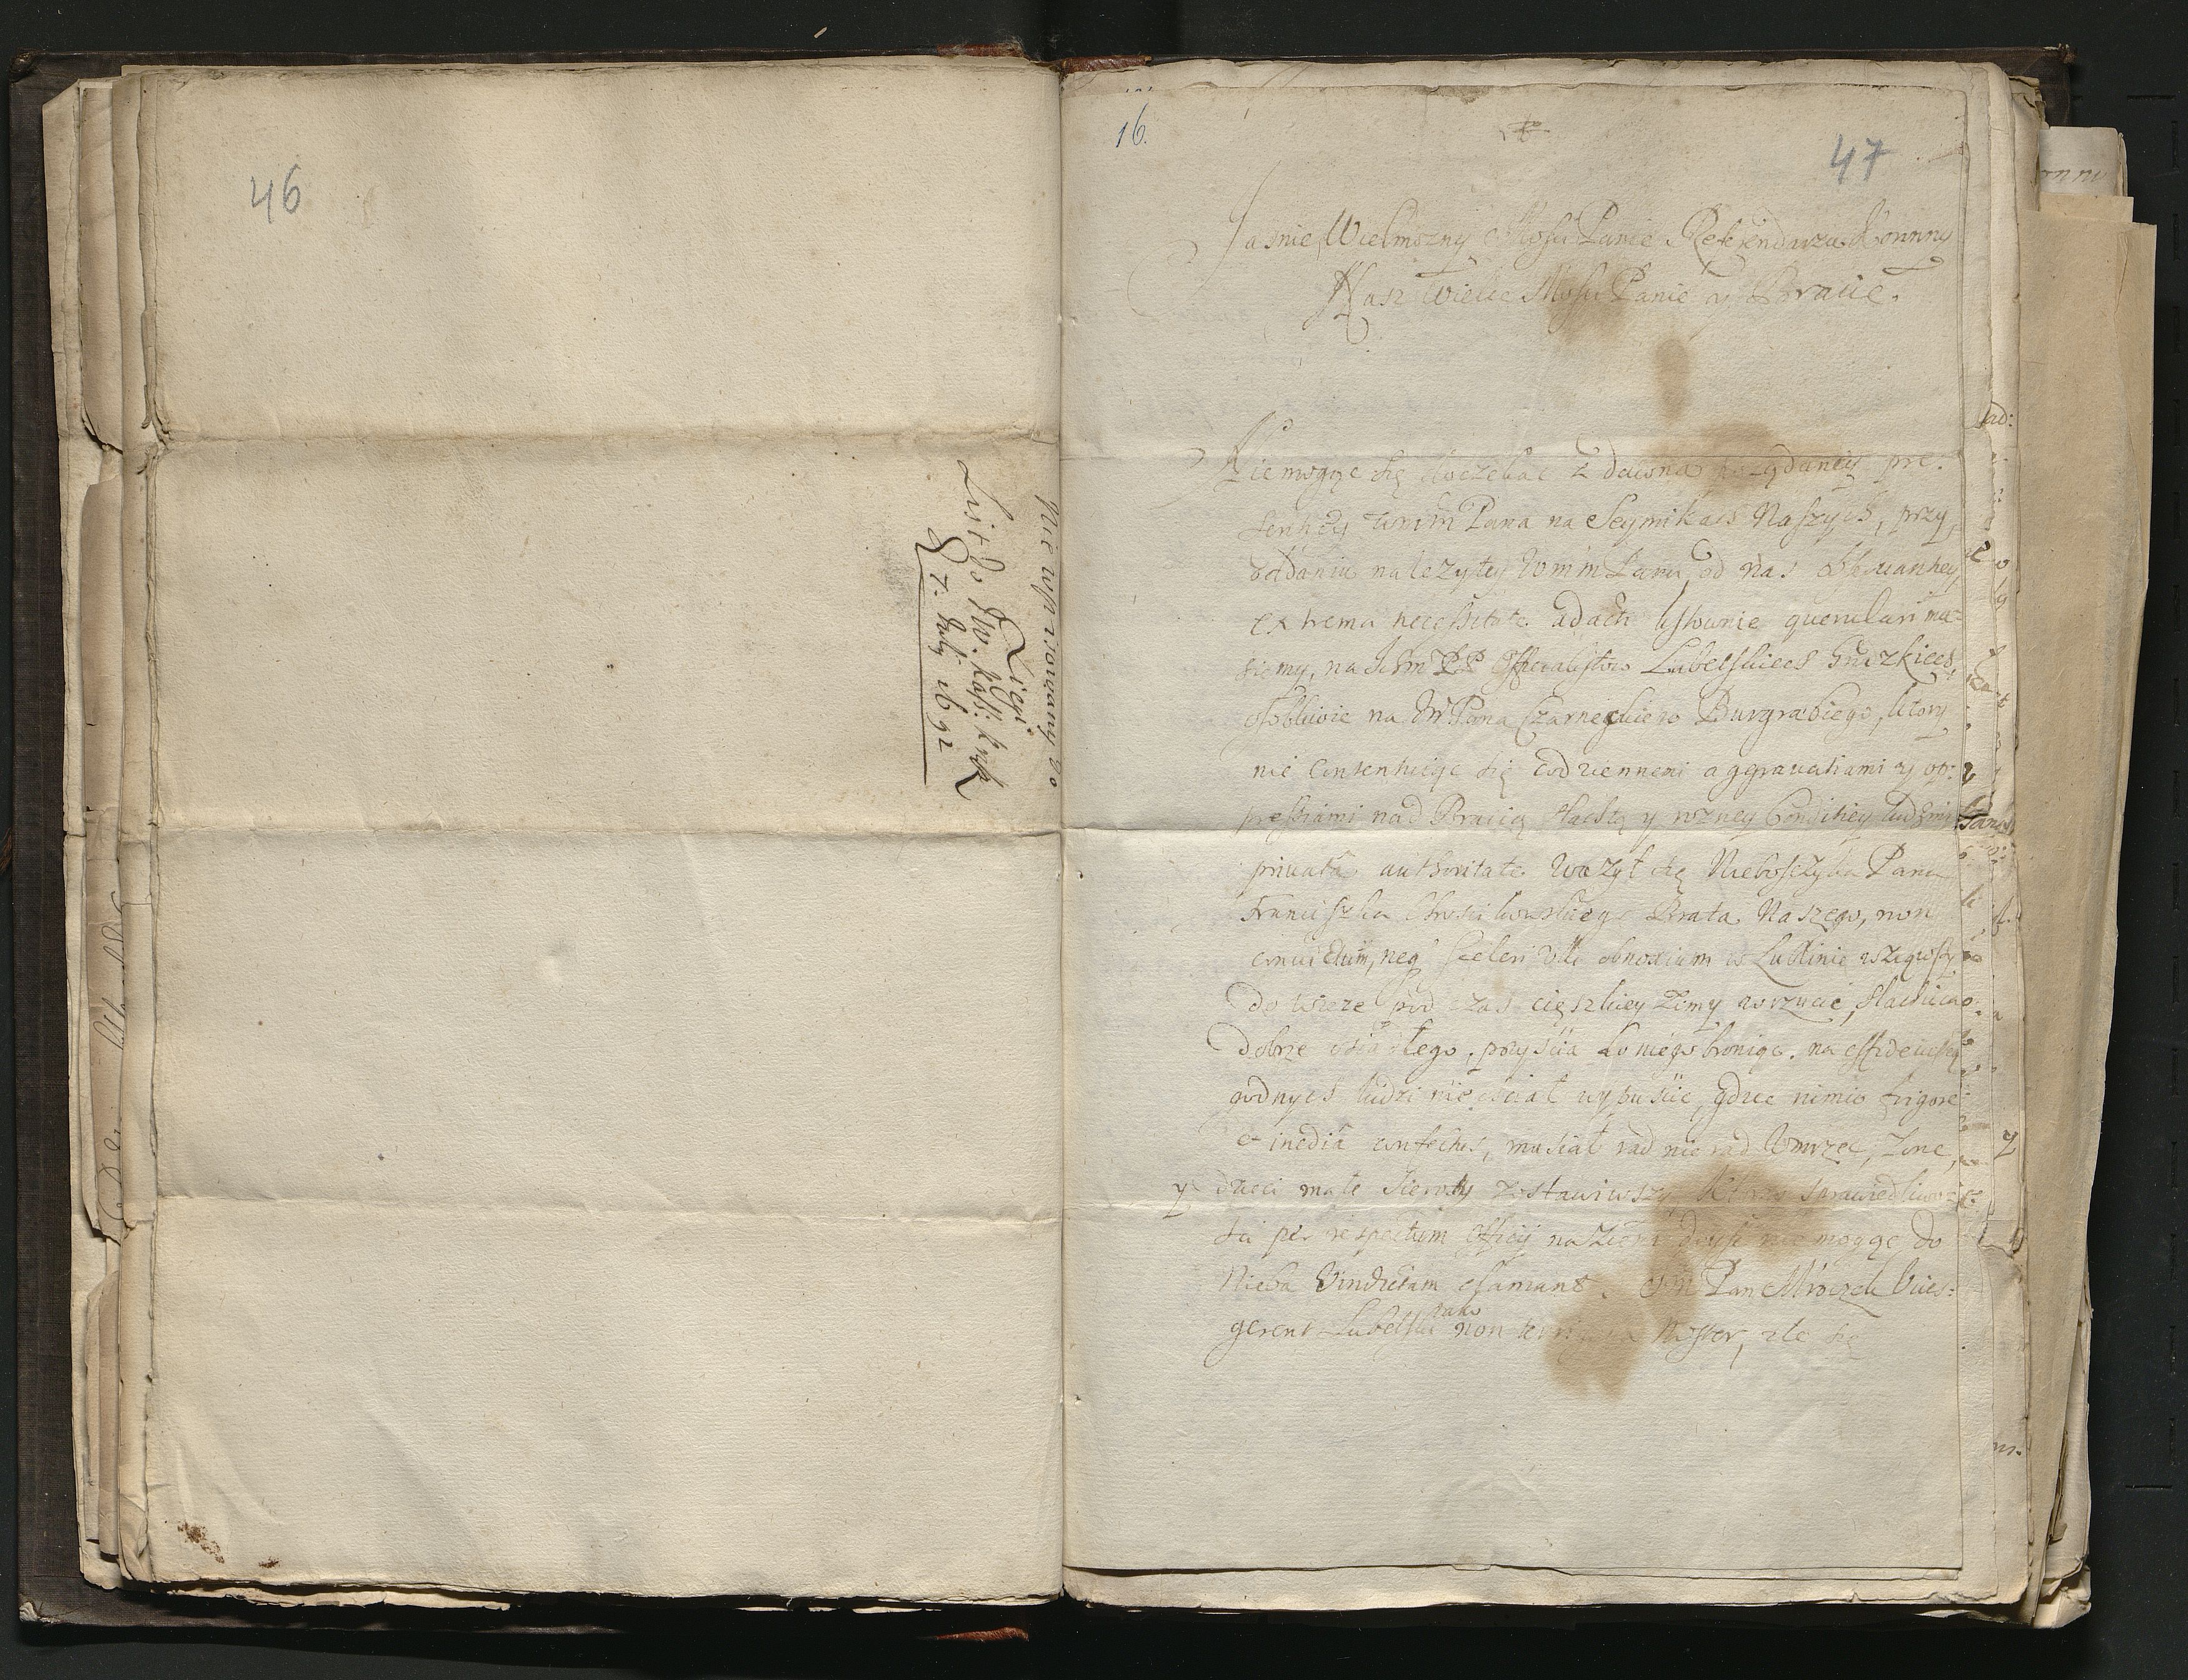 46
Nie wyprawiony do
Ziegi
List do JW. Kasz: Krak
D 7. July 1692
16.
47
Jasnie Wielmozny Mosci Panie Referendarzu Koronny
Nasz Wielce Mosci Panie y Bracie.
Nie mogąc się doczekac z dawna pozgdaney pre:
sentiey WmmPana na Seymikach Naszych, przy
oddaniu nalezytey WmmPanu od nas
extrema necessitate adacti listownie querulari mu:
siemy, na Ichm PP Officialistow Lubelskich Grodzkich,
osobliwie na JmPana Czarneckiego Burgrabiego, ktory
nie contentuiąc się codziennemi aggravatiami y op:
pressiami nad Bracią Slachtą y rozney Conditiey ludzmi
privata authoritate wazył się Nieboszczyka Pana
Franciszka Brata Naszego, non
convictum, neq sceleri ulli obnoxium w Lublinie
do wieze pod czas cięszkiey Zimy wrzucic, Slachcica
dobrze osiadłego, przyscia do niego broniąc. na
godnych ludzi nie chciał wypuscic, gdzie nimio frigore
et inedia confectus, musiał rad nie rad Umrzec, Zone,
y dzieci małe Sieroty zostawiwszy, Ktore sprawiedliwo:
sci per respectum Officij na Ziemi doysc nie mogąc do
Nieba Vindictam clamant. Jm Pan Mroczek Vices:
gerent Lubelski iako non Noster, zle się